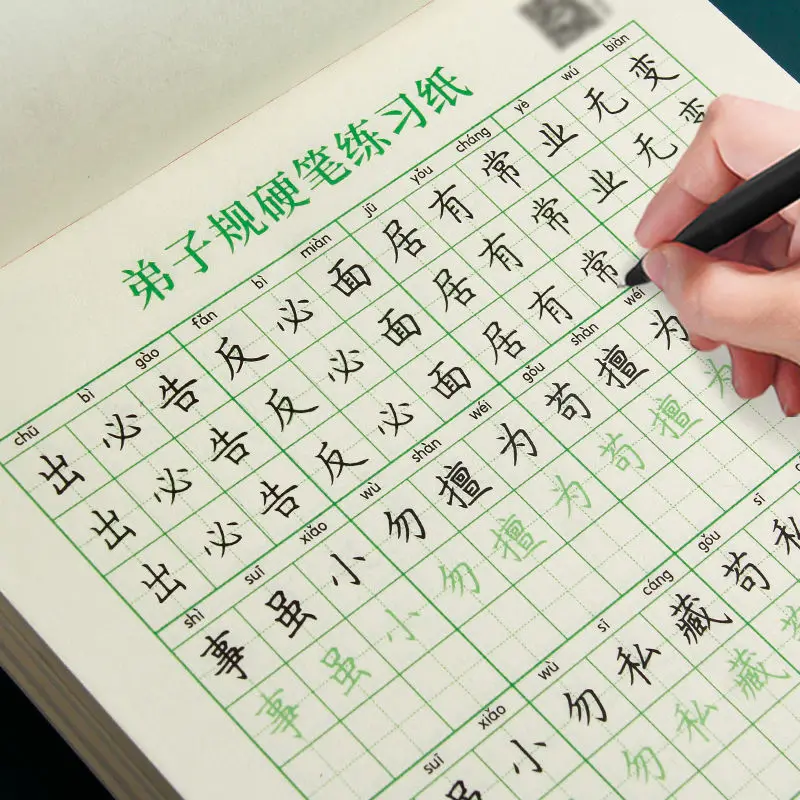 弟子规硬笔练习纸
chū bì gào fǎn bì miàn jū yǒu cháng yè wú biàn
出必告反必面居有常业无变
出必告反必面居有常业无变
出必告反必面居有常
shì suī xiǎo wù shàn wéi gǒu shàn wéi
事虽小勿擅为苟擅为
事虽小勿擅为苟擅为
suī xiǎo wù sī cáng gǒu sī
虽小勿私藏苟私
勿私藏苟